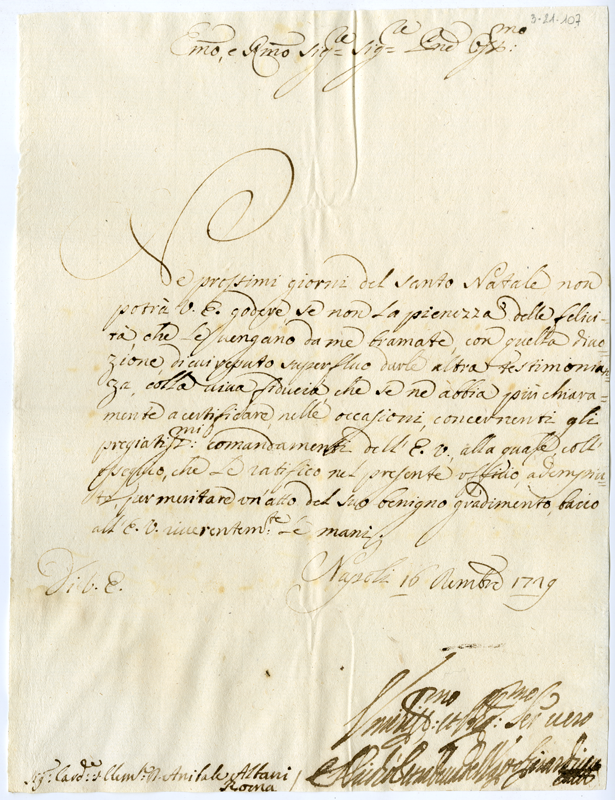 3-21-107
Emo, e Rmo Sig.re Sig.re Pne Oss.mo:
Ne prossimi giorni del Santo Natale non
potrà V. E. godere, se non la pienezza delle felici-
tà, che Le vengano da me bramate, con quella divo
zione, di cui reputo superfluo darle altra testimonian
za, colla viva fiducia, che se ne abbia più chiara-
mente a certificare, nelle occasioni, concernenti gli
pregiatiss.mi: comandamenti dell' E. V., alla quale, coll'
ossequio, che Le ratifico nel presente officio adempiu-
to, per meritare un'atto del suo benigno gradimento, bacio
all' E. V. riverentem.te Le mani.
Napoli 16 Xembre 1729
Di V. E.
mo mo
Ser vero
Sig.r Card.le Annibale Albani
Roma